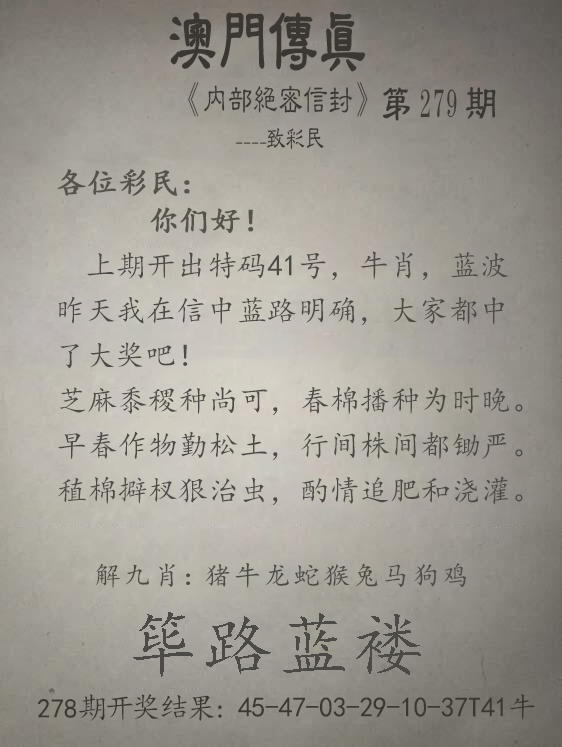 澳門傳眞
《内部絕密信封》第279期
----致彩民
各位彩民：
你们好！
上期开出特码41号，牛肖，蓝波
昨天我在信中蓝路明确，大家都中
了大奖吧！
芝麻黍稷种尚可，春棉播种为时晚。
早春作物勤松土，行间株间都锄严。
稙棉擗杈狠治虫，酌情追肥和浇灌。
解九肖：猪牛龙蛇猴兔马狗鸡
筚路蓝褛
278期开奖结果：45-47-03-29-10-37T41牛